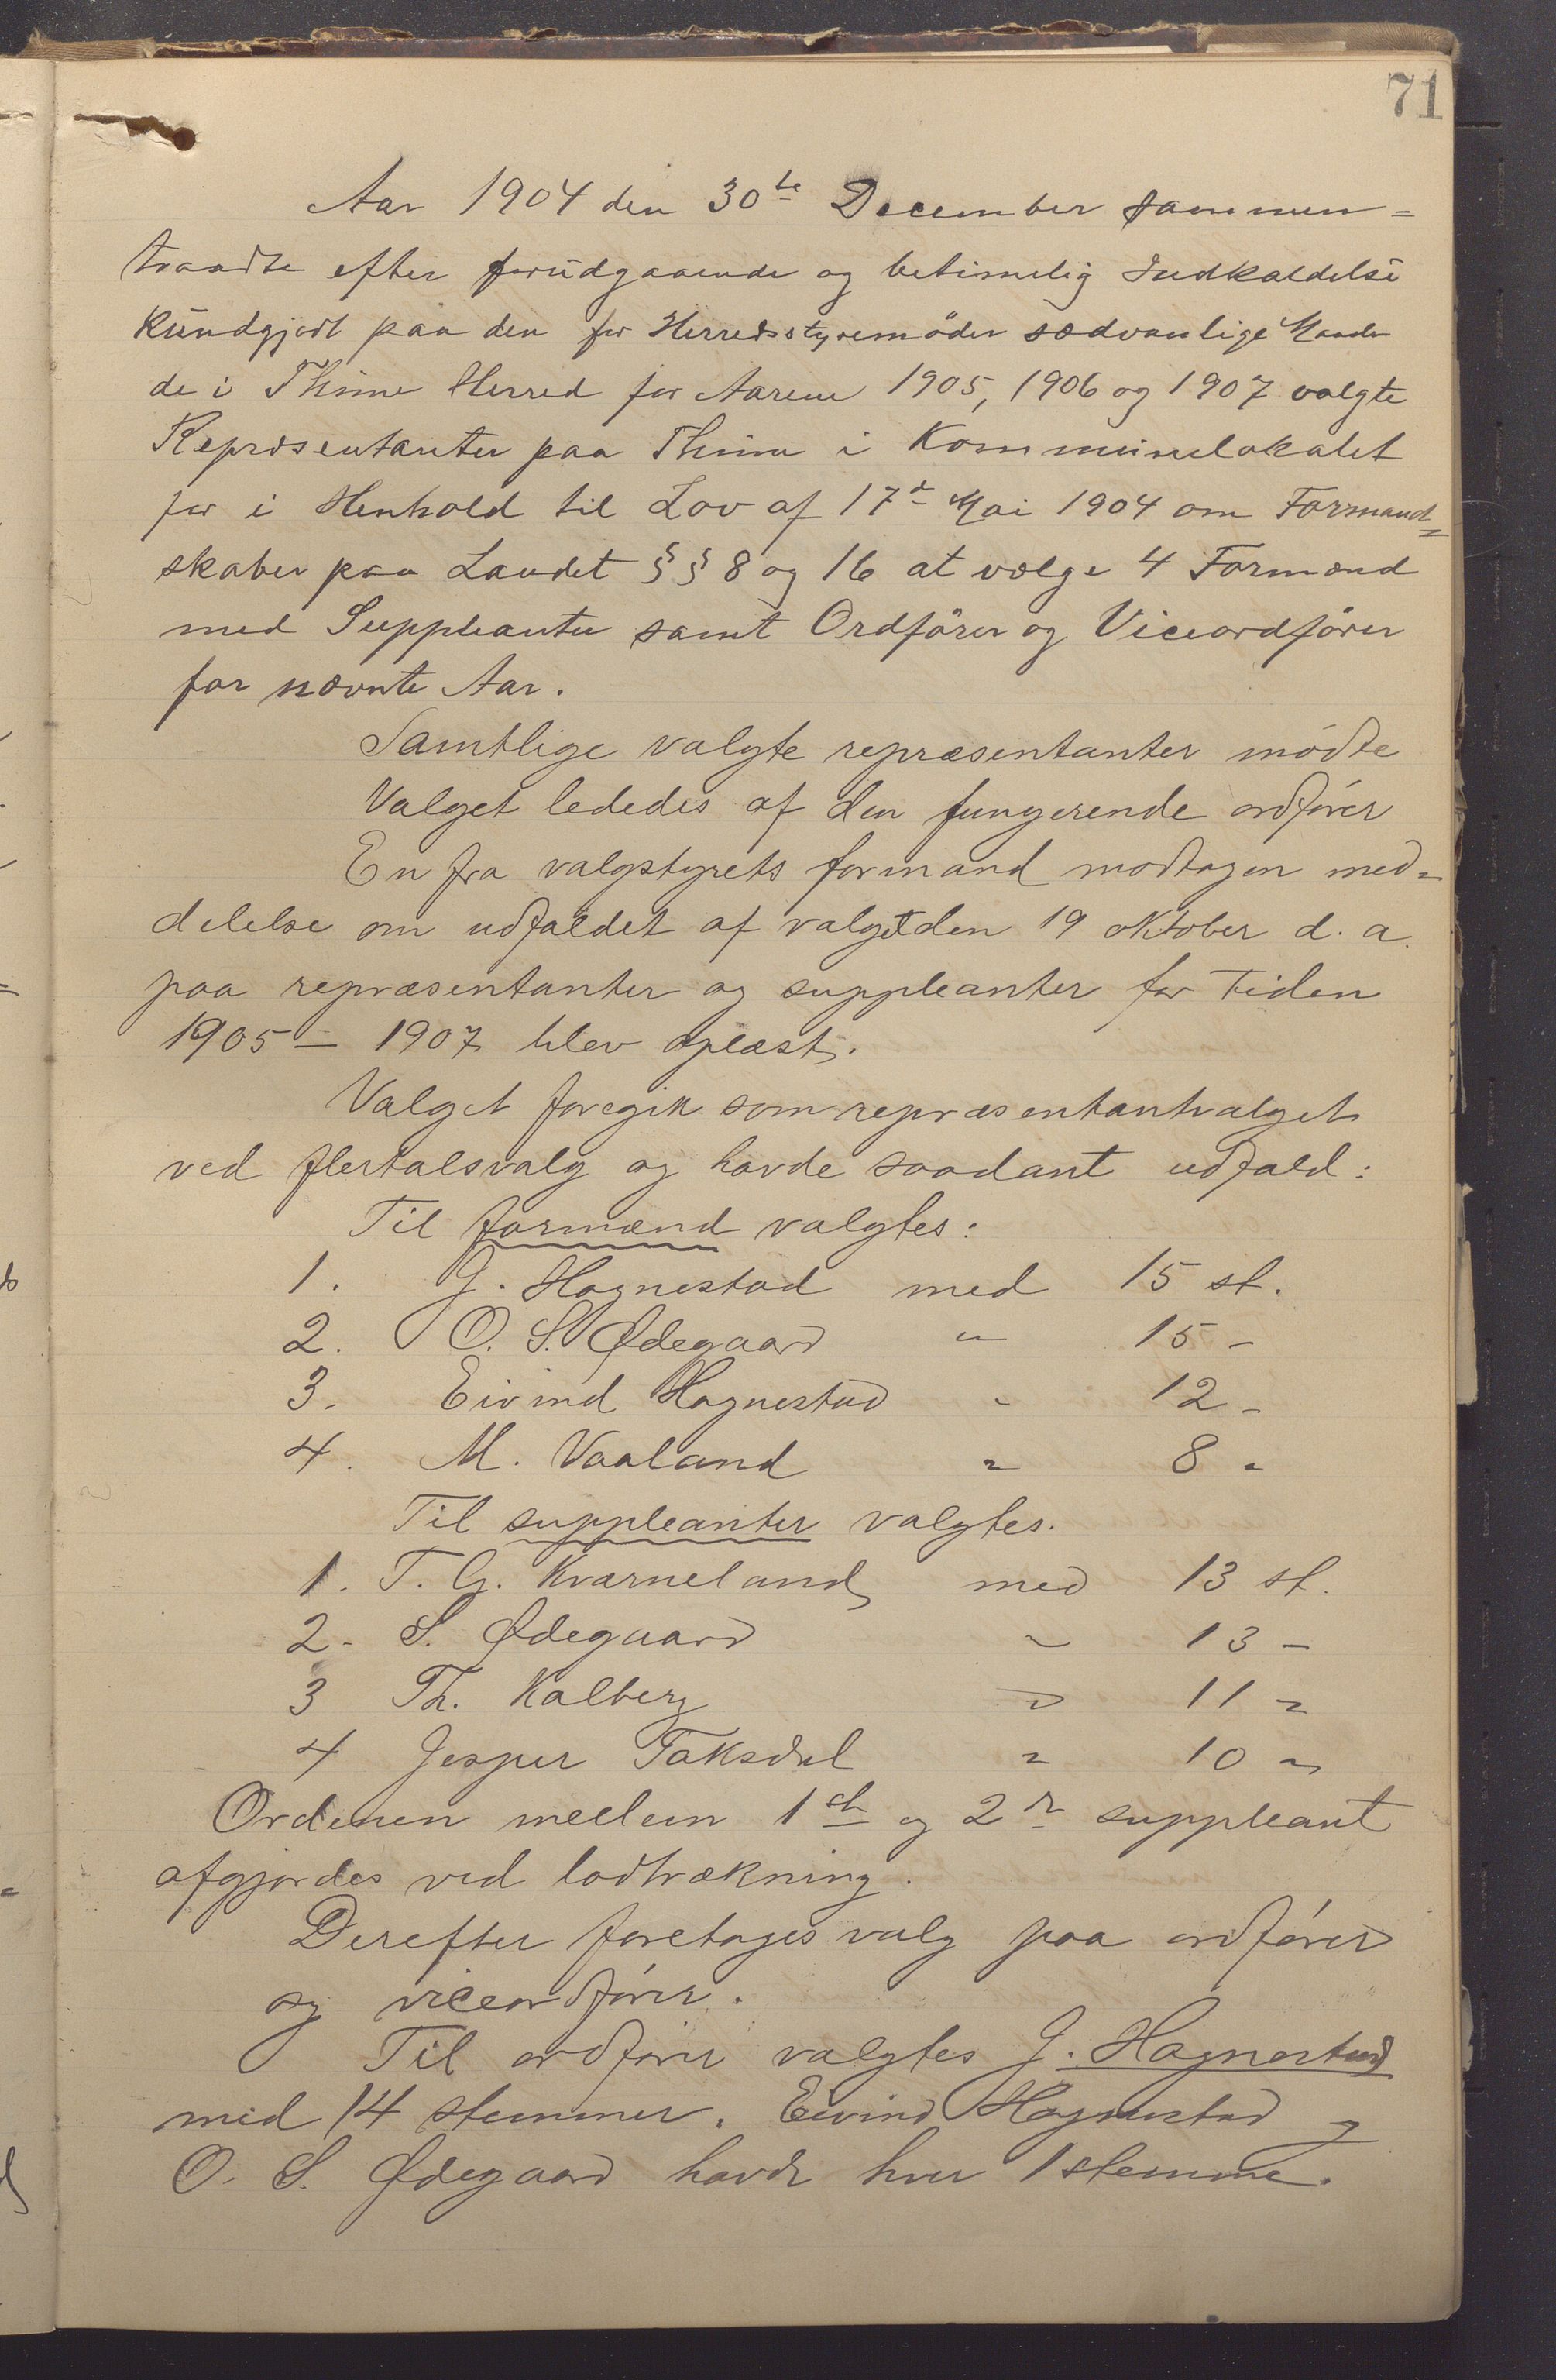 71
Aar 1904 den 30te December sammen=
traadte efter forudgaaende og betimelig Indkaldelse
kundgjort paa den for Herredsstyremøder sædvanlige Maade
de i Thime Herred for Aarene 1905, 1906 og 1907 valgte
Repræsentanter paa Thime i Kommunelokalet
for i Henhold til Lov af 17de Mai 1904 om Formand=
skaber paa Landet §§ 8 og 16 at vælge 4 Formænd
med Suppleanter samt Ordfører og Viceordfører
for nævnte Aar.
Samtlige valgte repræsentanter mødte
Valget lededes af den fungerende ordfører
En fra valgstyrets formand modtagen med=
delelse om udfaldet af valget den 19 oktober d. a.
paa repræsentanter og suppleanter for tiden
1905 – 1907 blev oplæst.
Valget foregik som repræsentantvalget
ved flertalsvalg og havde saadant udfald:
Til formænd valgtes:
1. G. Hognestad med 15 st.
2. O. S. Ødegaard " 15 –
3. Eivind Hognestad " 12 –
4. M. Vaaland " 8 "
Til suppleanter valgtes.
1. T. G. Kværneland med 13 st.
2 - S. Ødegaard " 13 –
3 Th. Kalberg " 11 "
4 Jesper Taksdal " 10 "
Ordenen mellem 1ste og 2den suppleant
afgjordes ved lodtrækning.
Derefter foretoges valg paa ordfører
og viceordfører.
Til ordfører valgtes G. Hognestad
med 14 stemmer. Eivind Hognestad og
O. S. Ødegaard havde hver 1 stemme.